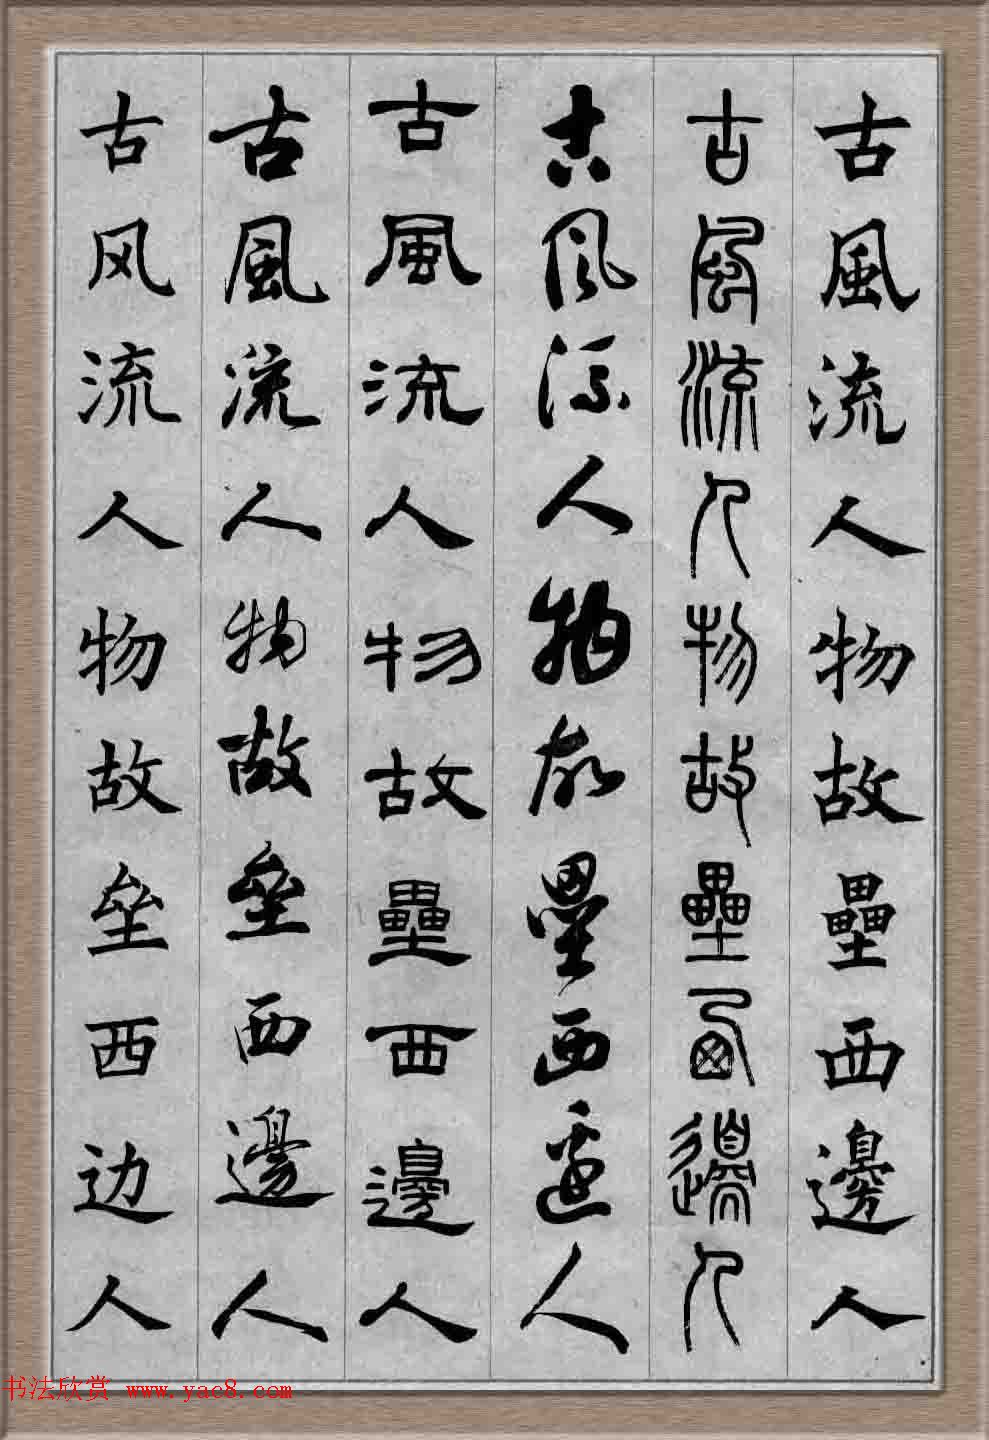 古風流人物故壘西邊人
古風流人物故壘西邊人
古風流人物故壘西邊人
古風流人物故壘西邊人
古風流人物故垒西邊人
古风流人物故垒西边人
书法欣赏 www.yac8.com